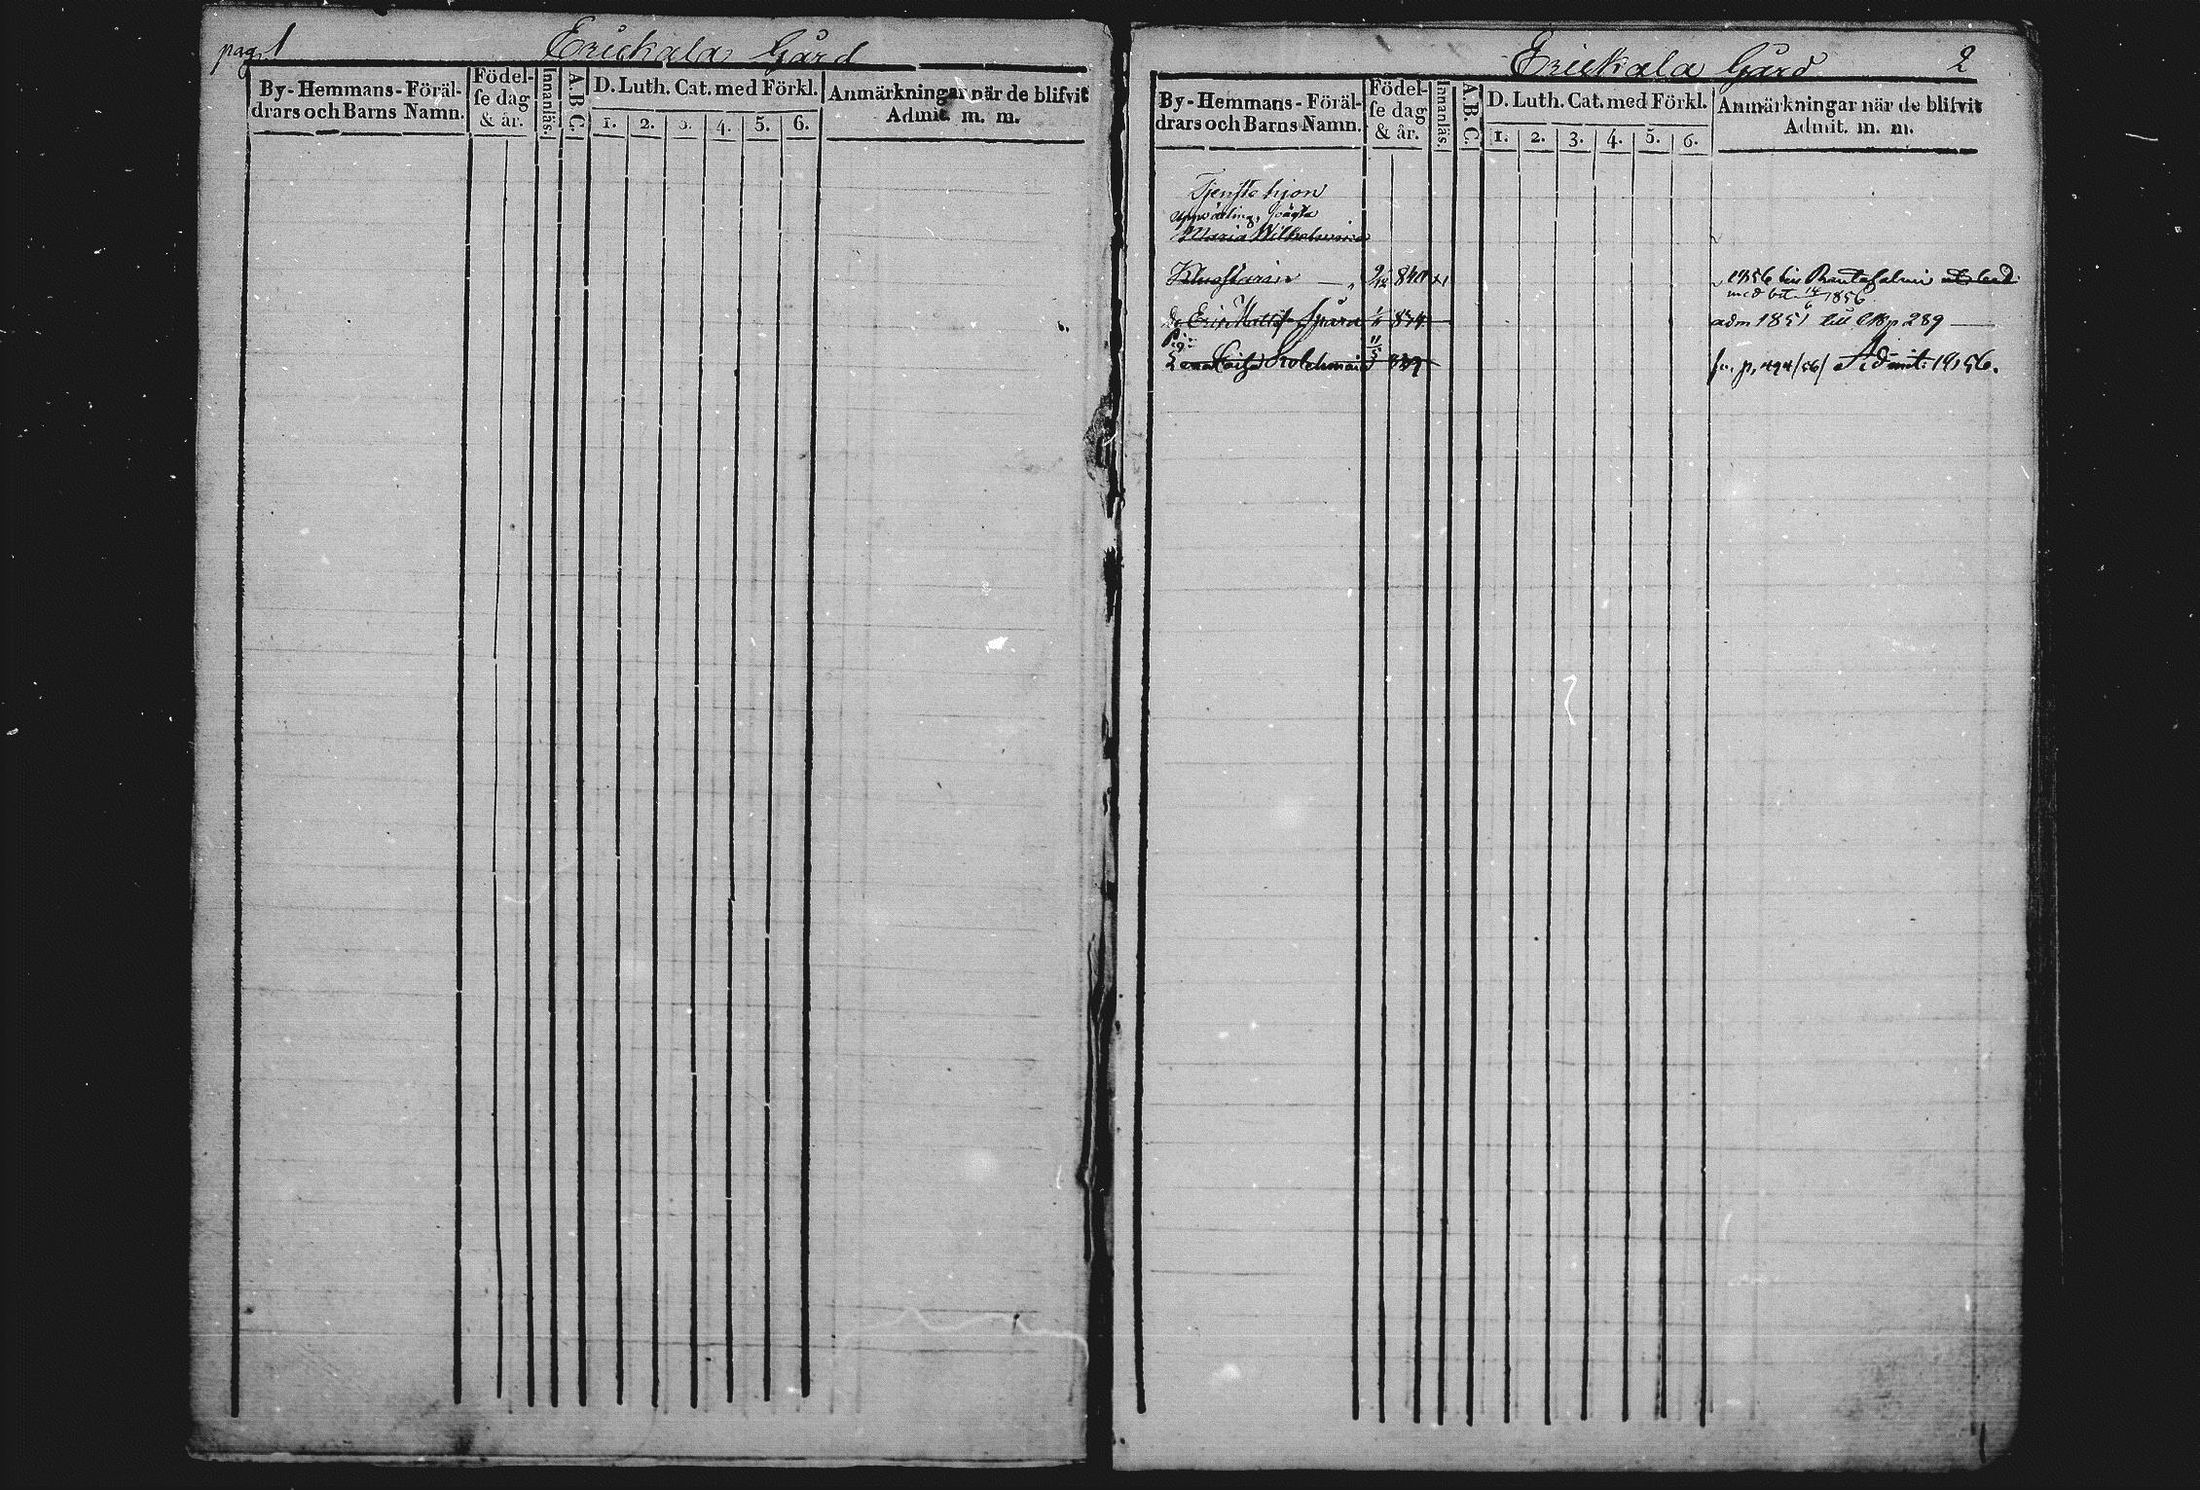 pag 1
Erickala Gård
By-Hemmans-Föräl-
drars och Barns Namn.
Födel-
se dag
& år.
Innanläs.
A.B.C.
D. Luth. Cat. med Förkl.
1. 2. 3. 4. 5. 6.
Anmärkningar när de blifvit
Admit. m. m.
Erickala Gård 2
By-Hemmans-Föräl-
drars och Barns Namn.
Födel-
se dag
& år.
Innanläs
A.B.C.
D. Luth. Cat. med Förkl.
1. 2. 3. 4. 5. 6.
Anmärkningar när de blifvit
Admit. m. m.
Tjenste hjon
Maria Wilhelmina
840 1856 till Rantasalmi
med bet 14/6 1856
Eric 834 adm 1851 till p 289
Pig:
Lena Caisa 11/5 839 fr. p. 494/56/ Admit: 1856.